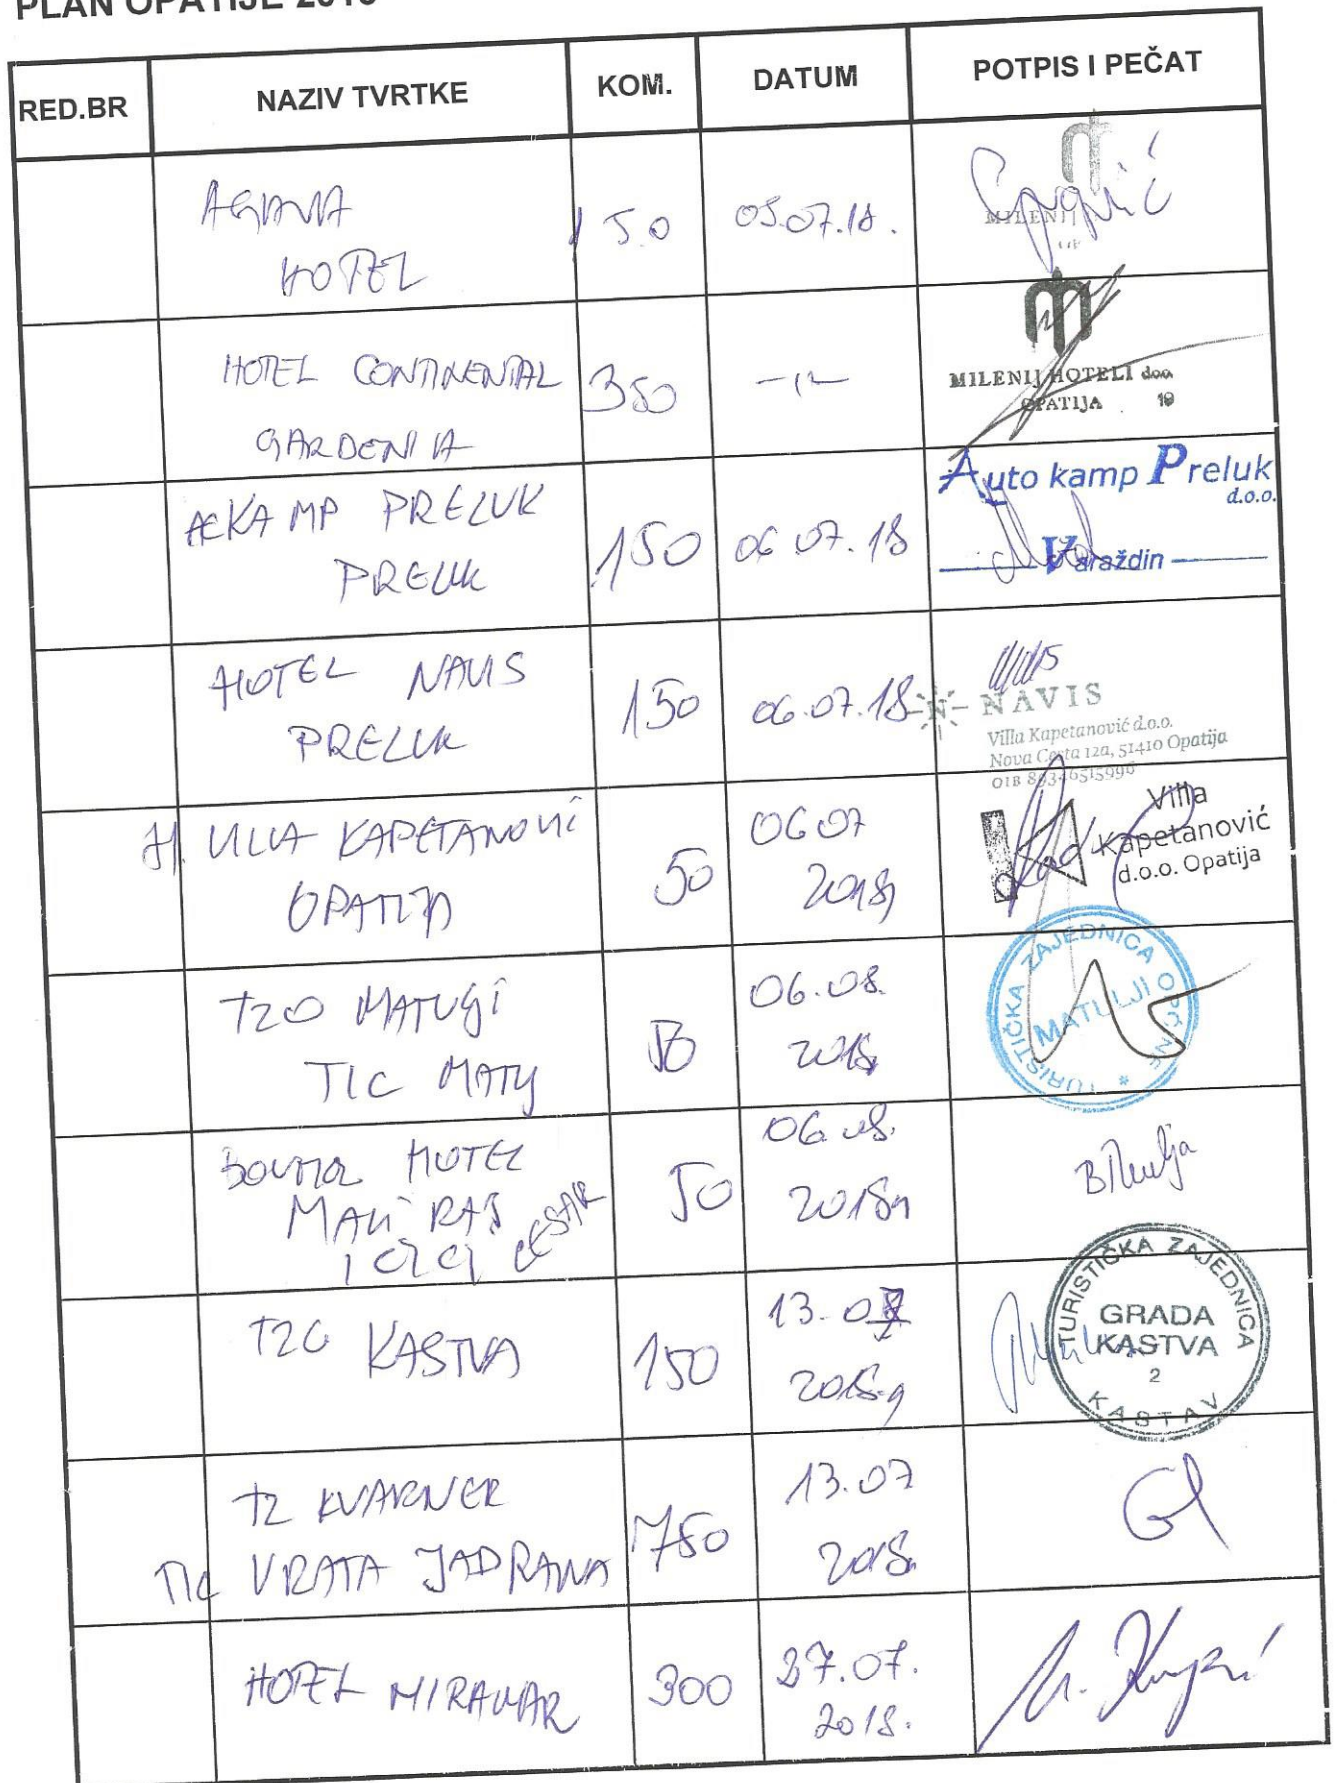 PLAN OPATIJE 2018
RED.BR NAZIV TVRTKE KOM. DATUM POTPIS I PEČAT
AGAVA
HOTEL
50 05.07.18.
MILENIJ
HOTEL CONTINENTAL
GARDENIA
350 -11-
MILENIJ HOTELI d.o.o.
OPATIJA 19
KAMP PRELUK
PRELUK
150 06.07.18
Auto kamp Preluk
d.o.o.
Varaždin
HOTEL NAVIS
PRELUK
150 06.07.18
NAVIS
Villa Kapetanović d.o.o.
Nova Cesta 12a, 51410 Opatija
H. VILLA KAPETANOVIĆ
OPATIJA
50 06 07
2018g
Villa
Kapetanović
d.o.o. Opatija
TZO MATULJI
TIC MATULJI
50 06.08.
2018.
TURISTIČKA ZAJEDNICA OPĆINE
MATULJI
HOTEL
MALI RAJ
50 06.08.
2018g
TZG KASTVA
150 13.07
2018.g
TURISTIČKA ZAJEDNICA
GRADA
KASTVA
2
KASTAV
TZ KVARNER
TIC VRATA JADRANA
750 13.07
2018.
HOTEL MIRAMAR
300 27.07.
2018.